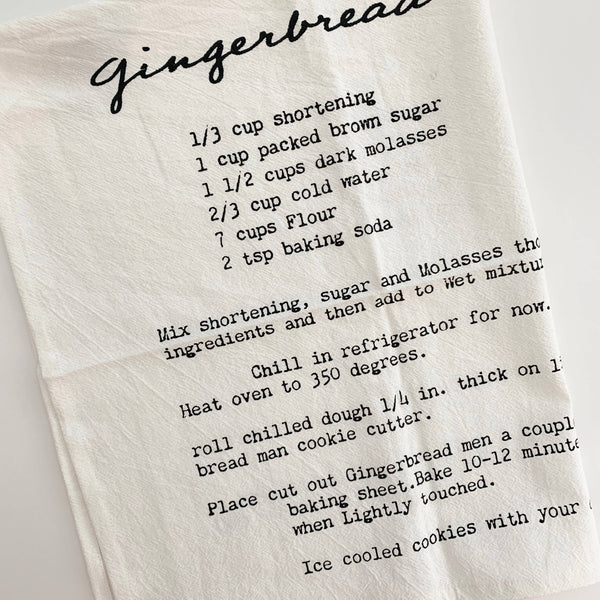 Gingerbread
1/3 cup shortening
1 cup packed brown sugar
1 1/2 cups dark molasses
2/3 cup cold water
7 cups Flour
2 tsp baking soda
Mix shortening, sugar and Molasses
ingredients and then add to Wet
Chill in refrigerator for now.
Heat oven to 350 degrees.
roll chilled dough 1/4 in. thick on
bread man cookie cutter.
Place cut out Gingerbread men a
baking sheet.Bake 10-12
when Lightly touched.
Ice cooled cookies with your